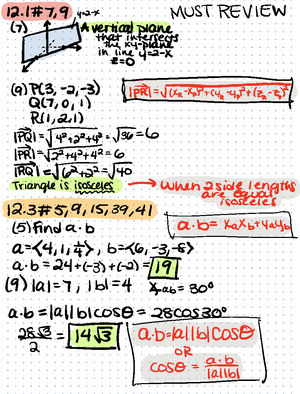 12.1#7,9
MUST REVIEW
(7)
y=2-x
A vertical plane
that intersects
the xy-plane
in line y=2-x
z=0
(9) P(3, -2, -3)
Q(7, 0, 1)
R(1, 2, 1)
|PR| = √(x₂-x₁)²+(y₂-y₁)²+(z₂-z₁)²
|PQ| = √4²+2²+4² = √36 = 6
|PR| = √2²+4²+4² = 6
|RQ| = √6²+2² = √40
Triangle is isosceles
When 2 side lengths are equal isosceles
12.3#5,9,15,39,41
(5) Find a·b
a·b = xaxb+yayb
a=<4,1,¼>, b=<6,-3,-8>
a·b = 24+(-3)+(-2) = 19
(9) |a|=7, |b|=4 ∡ab=30°
a·b = |a||b|cosθ = 28cos30°
28√3/2 = 14√3
a·b=|a||b|cosθ
OR
cosθ = a·b/|a||b|